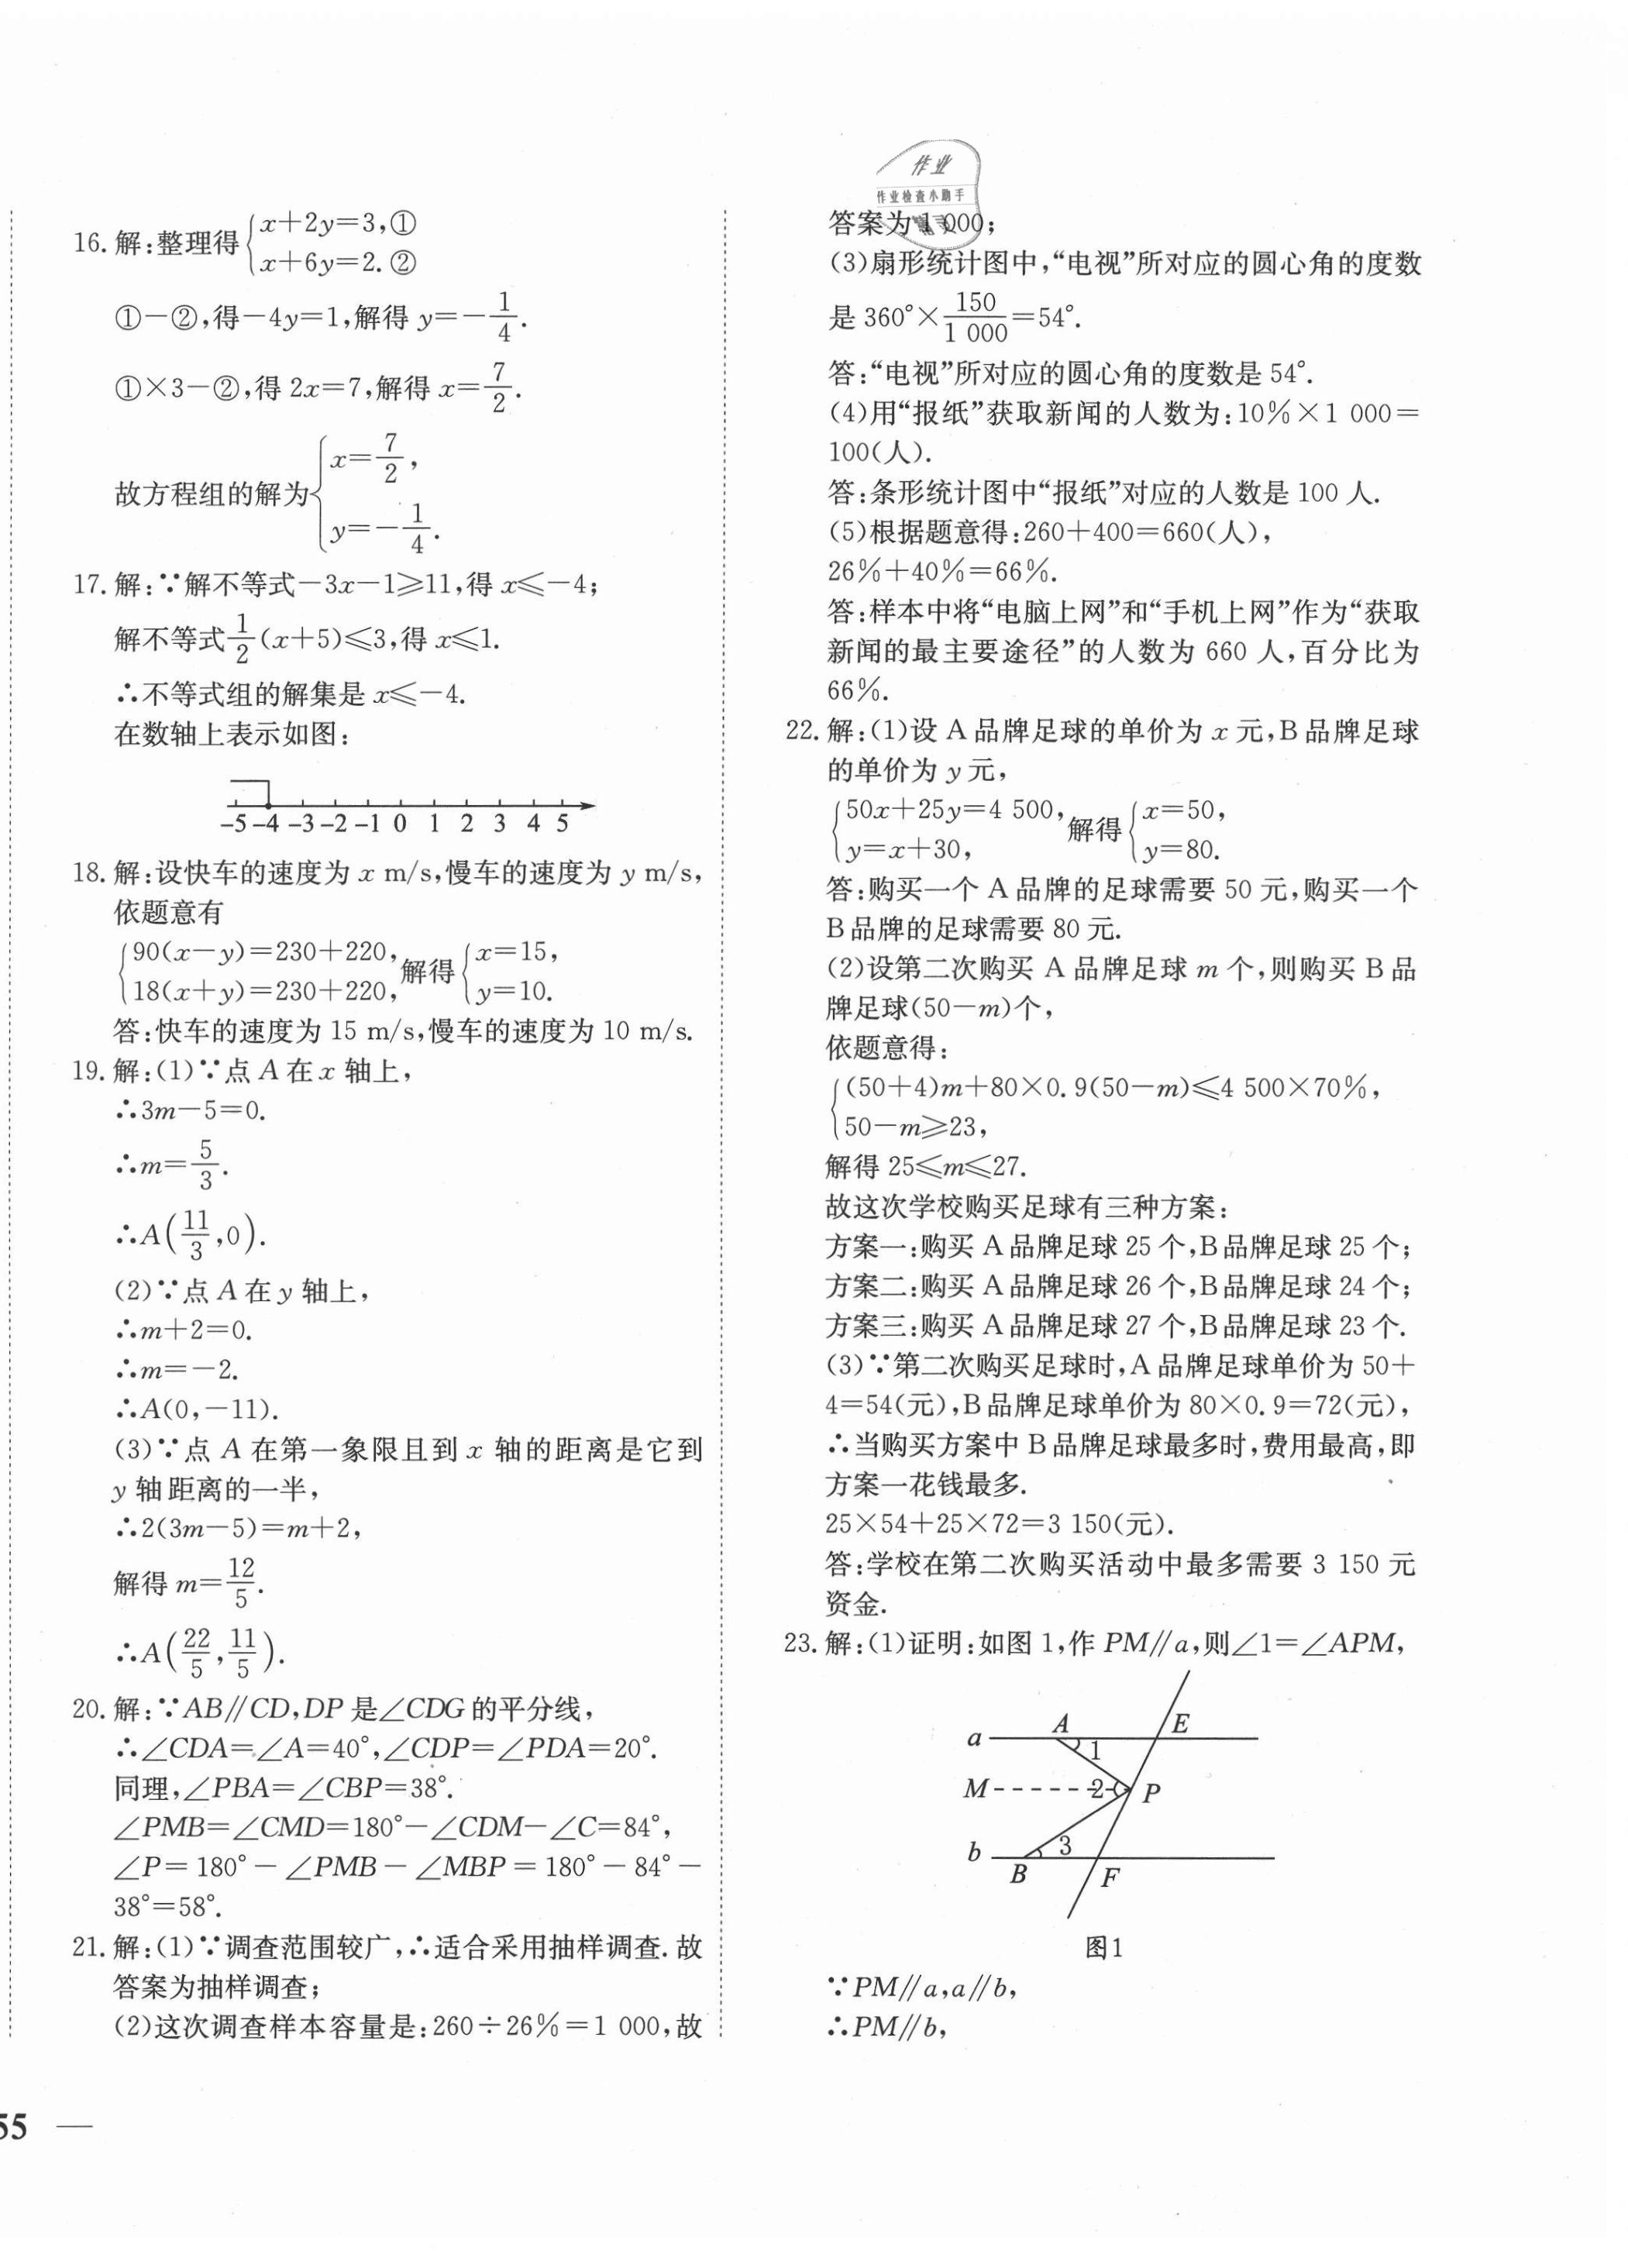 16. 解:整理得{x+2y=3,①
x+6y=2. ②
①-②,得-4y=1,解得 y=-1/4.
①×3-②,得 2x=7,解得 x=7/2.
故方程组的解为{x=7/2,
y=-1/4.
17. 解:∵解不等式-3x-1≥11,得 x≤-4;
解不等式1/2(x+5)≤3,得 x≤1.
∴不等式组的解集是 x≤-4.
在数轴上表示如图:
-5 -4 -3 -2 -1 0 1 2 3 4 5
18. 解:设快车的速度为 x m/s,慢车的速度为 y m/s,
依题意有
{90(x-y)=230+220, 解得{x=15,
18(x+y)=230+220, y=10.
答:快车的速度为 15 m/s,慢车的速度为 10 m/s.
19. 解:(1)∵点 A 在 x 轴上,
∴3m-5=0.
∴m=5/3.
∴A(11/3,0).
(2)∵点 A 在 y 轴上,
∴m+2=0.
∴m=-2.
∴A(0,-11).
(3)∵点 A 在第一象限且到 x 轴的距离是它到
y 轴距离的一半,
∴2(3m-5)=m+2,
解得 m=12/5.
∴A(22/5,11/5).
20. 解:∵AB∥CD,DP 是∠CDG 的平分线,
∴∠CDA=∠A=40°,∠CDP=∠PDA=20°.
同理,∠PBA=∠CBP=38°.
∠PMB=∠CMD=180°-∠CDM-∠C=84°,
∠P=180°-∠PMB-∠MBP=180°-84°-
38°=58°.
21. 解:(1)∵调查范围较广,∴适合采用抽样调查. 故
答案为抽样调查;
(2)这次调查样本容量是:260÷26%=1 000,故
55 —
作业
作业检查小助手
答案为 1 000;
(3)扇形统计图中,“电视”所对应的圆心角的度数
是 360°×150/1 000=54°.
答:“电视”所对应的圆心角的度数是 54°.
(4)用“报纸”获取新闻的人数为:10%×1 000=
100(人).
答:条形统计图中“报纸”对应的人数是 100 人.
(5)根据题意得:260+400=660(人),
26%+40%=66%.
答:样本中将“电脑上网”和“手机上网”作为“获取
新闻的最主要途径”的人数为 660 人,百分比为
66%.
22. 解:(1)设 A 品牌足球的单价为 x 元,B 品牌足球
的单价为 y 元,
{50x+25y=4 500, 解得{x=50,
y=x+30, y=80.
答:购买一个 A 品牌的足球需要 50 元,购买一个
B 品牌的足球需要 80 元.
(2)设第二次购买 A 品牌足球 m 个,则购买 B 品
牌足球(50-m)个,
依题意得:
{(50+4)m+80×0.9(50-m)≤4 500×70%,
50-m≥23,
解得 25≤m≤27.
故这次学校购买足球有三种方案:
方案一:购买 A 品牌足球 25 个,B 品牌足球 25 个;
方案二:购买 A 品牌足球 26 个,B 品牌足球 24 个;
方案三:购买 A 品牌足球 27 个,B 品牌足球 23 个.
(3)∵第二次购买足球时,A 品牌足球单价为 50+
4=54(元),B 品牌足球单价为 80×0.9=72(元),
∴当购买方案中 B 品牌足球最多时,费用最高,即
方案一花钱最多.
25×54+25×72=3 150(元).
答:学校在第二次购买活动中最多需要 3 150 元
资金.
23. 解:(1)证明:如图 1,作 PM∥a,则∠1=∠APM,
a A E
1
M 2 P
b 3
B F
图1
∵PM∥a,a∥b,
∴PM∥b,